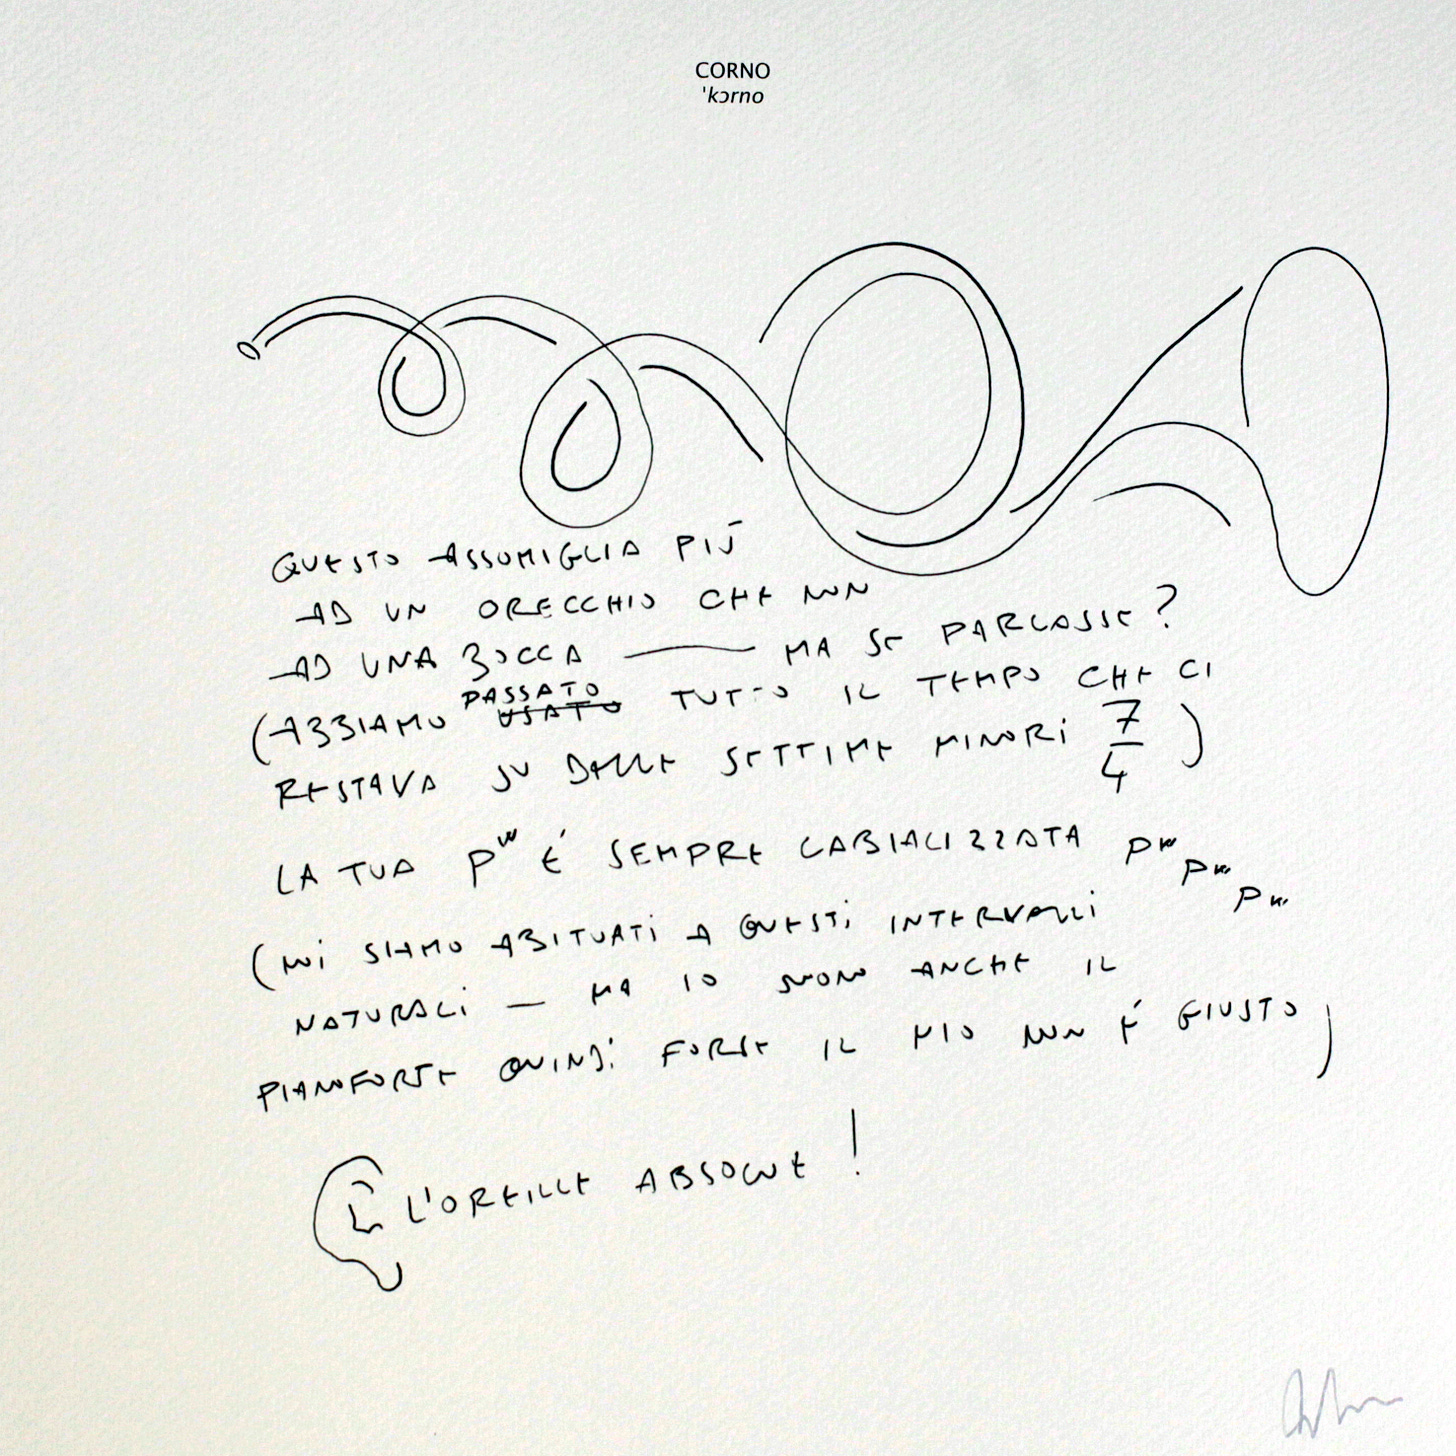 CORNO
'kɔrno
QUESTO ASSOMIGLIA PIÙ
AD UN ORECCHIO CHE NON
AD UNA BOCCA — MA SE PARLASSE?
(ABBIAMO PASSATO USATO TUTTO IL TEMPO CHE CI
RESTAVA SU DELLE SETTIME MINORI 7/4)
LA TUA pʷ É SEMPRE LABIALIZZATA pʷ pʷ pʷ
(NOI SIAMO ABITUATI A QUESTI INTERVALLI
NATURALI — MA IO SUONO ANCHE IL
PIANOFORTE QUINDI FORSE IL MIO NON É GIUSTO)
L'OREILLE ABSOLUE!